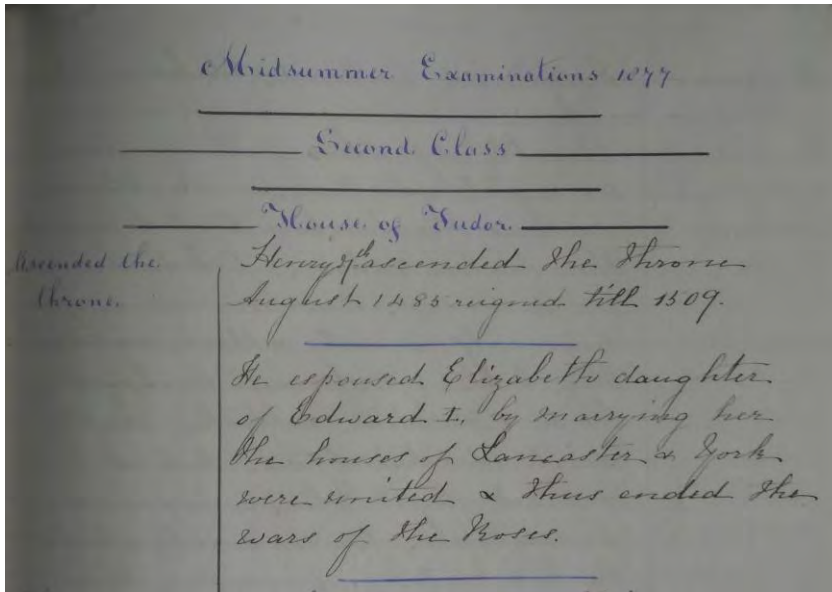 Midsummer Examinations 1877
Second Class
House of Tudor.
Ascended the
throne.
Henry 7th ascended the throne
August 1485 reigned till 1509.
He espoused Elizabeth daughter
of Edward I, by marrying her
the houses of Lancaster & York
were united & thus ended the
wars of the Roses.